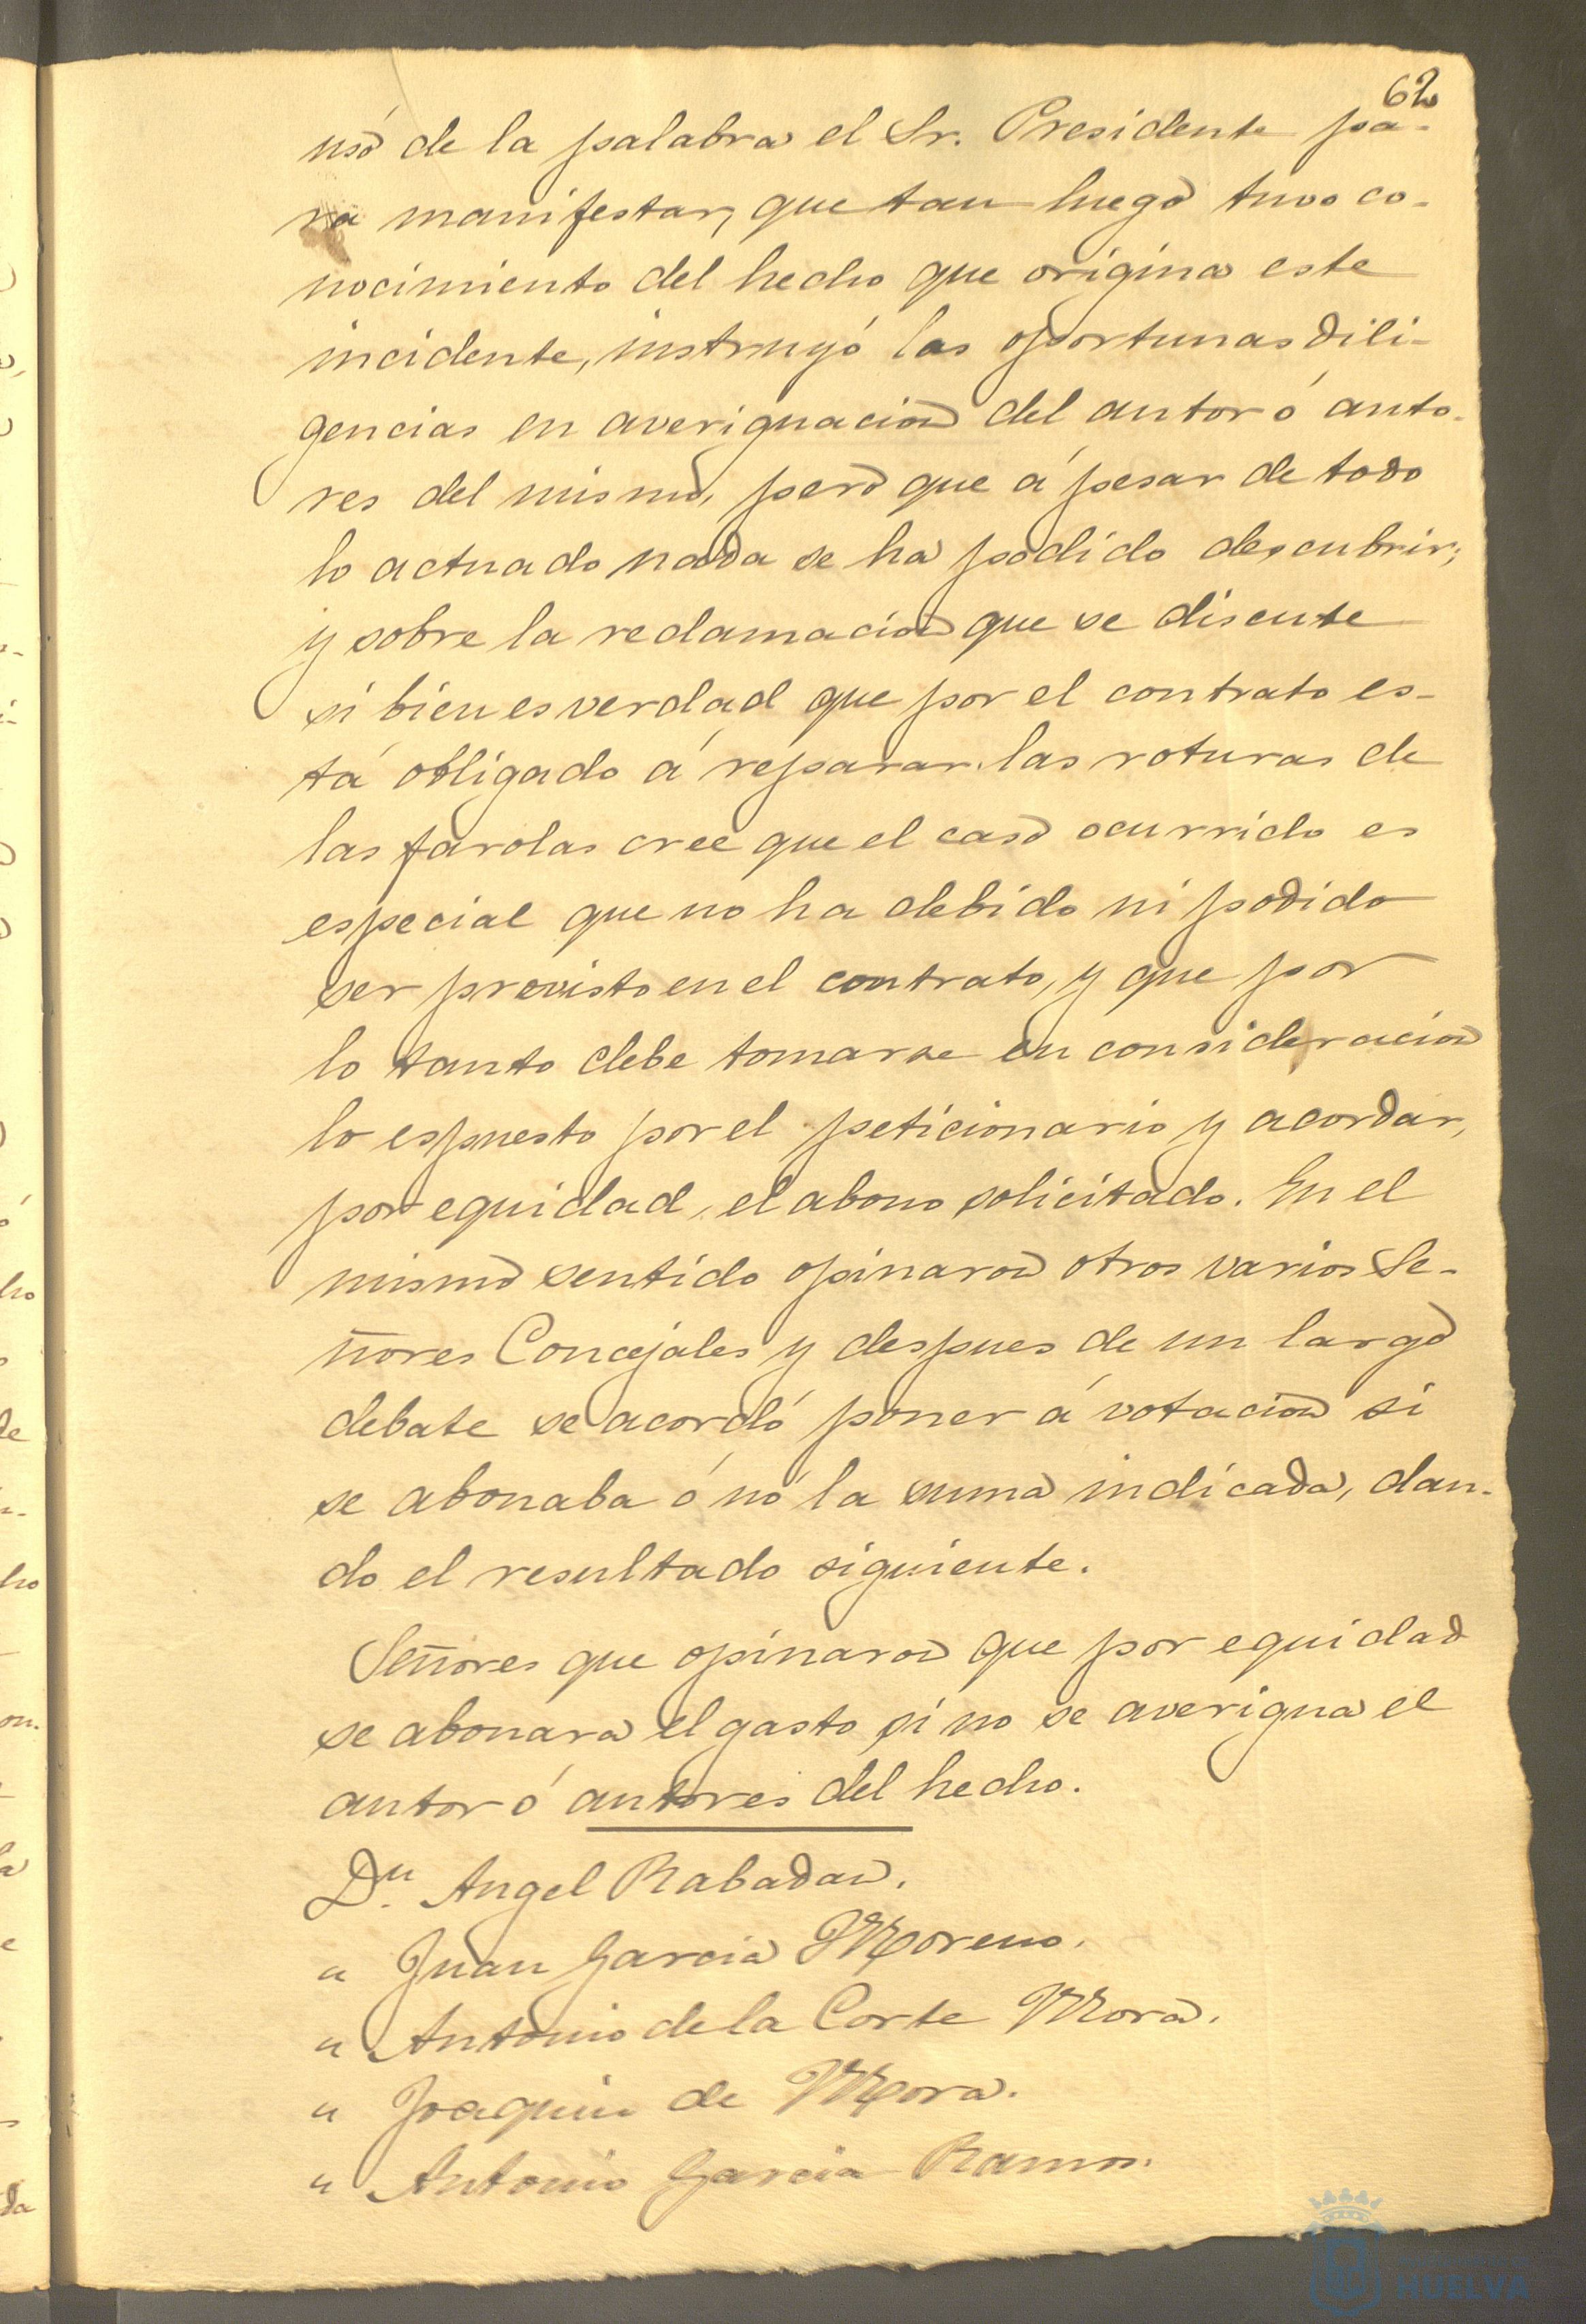 62
usó de la palabra el Sr. Presidente pa-
ra manifestar, que tan luego tuvo co-
nocimiento del hecho que origina este
incidente, instruyó las oportunas dili-
gencias en averiguacion del autor ó auto-
res del mismo, pero que á pesar de todo
lo actuado nada se ha podido descubrir;
y sobre la reclamacion que se discute
si bien es verdad que por el contrato es-
tá obligado á reparar las roturas de
las farolas cree que el caso ocurrido es
especial que no ha debido ni podido
ser previsto en el contrato, y que por
lo tanto debe tomarse en consideracion
lo espuesto por el peticionario y acordar,
por equidad, el abono solicitado. En el
mismo sentido opinaron otros varios Se-
ñores Concejales y despues de un largo
debate se acordó poner á votacion si
se abonaba ó nó la suma indicada, dan-
do el resultado siguiente.
Señores que opinaron que por equidad
se abonara el gasto si no se averigua el
autor ó autores del hecho.
Dn. Angel Rabadan.
" Juan Garcia Moreno.
" Antonio de la Corte Mora.
" Joaquin de Mora.
" Antonio Garcia Ramos.
HUELVA